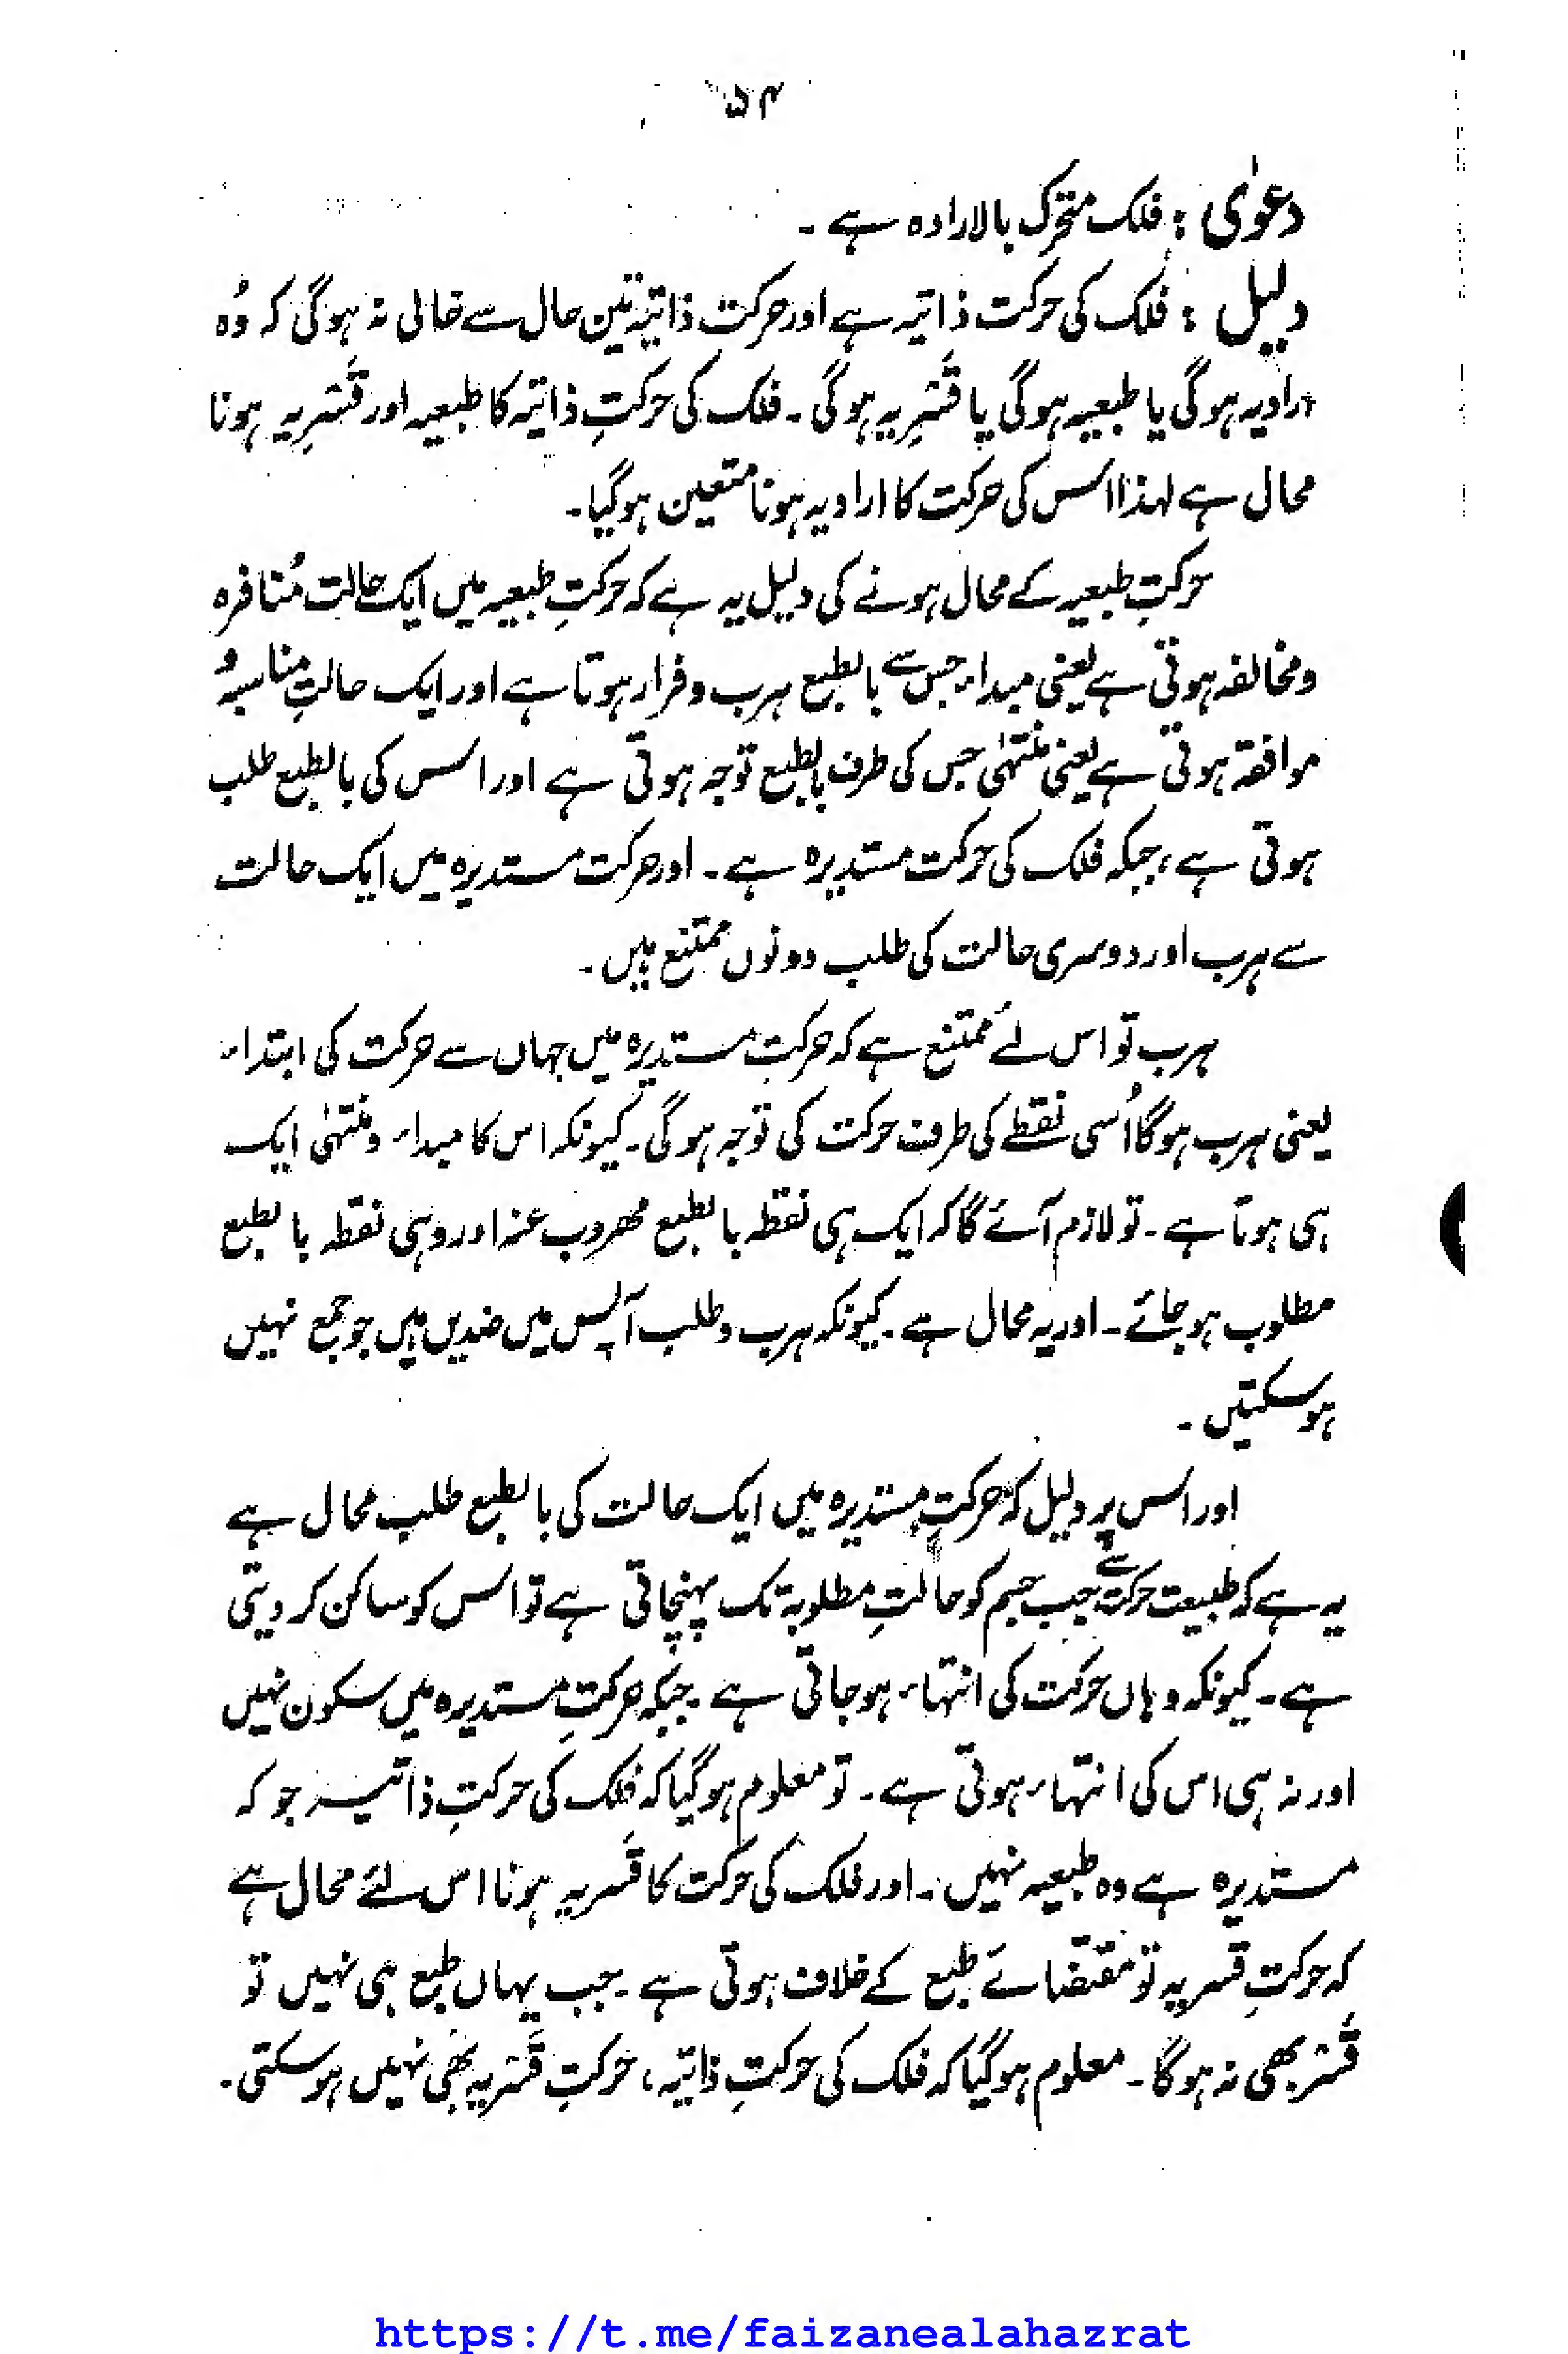 ۵۴
دعوٰی : فلک متحرک بالارادہ ہے ۔
دلیل : فلک کی حرکت ذاتیہ ہے اور حرکتِ ذاتیہ تین حال سے خالی نہ ہوگی کہ وُہ
ارادیہ ہوگی یا طبعیہ ہوگی یا قَسْرِیہ ہوگی ۔ فلک کی حرکتِ ذاتیہ کا طبعیہ اور قَسْرِیہ ہونا
محال ہے لہذا اس کی حرکت کا ارادیہ ہونا متعین ہوگیا۔
حرکتِ طبعیہ کے محال ہونے کی دلیل یہ ہے کہ حرکتِ طبعیہ میں ایک حالت مُنافرہ
ومخالفہ ہوتی ہے یعنی مبداء جس سے بالطبع ہرب وفرار ہوتا ہے اور ایک حالتِ مناسبہ وُ
موافقہ ہوتی ہے یعنی منتہٰی جس کی طرف بالطبع توجہ ہوتی ہے اور اس کی بالطبع طلب
ہوتی ہے، جبکہ فلک کی حرکت مستدیرہ ہے ۔ اور حرکت مستدیرہ میں ایک حالت
سے ہرب اور دوسری حالت کی طلب دونوں ممتنع ہیں۔
ہرب تو اس لئے ممتنع ہے کہ حرکتِ مستدیرہ میں جہاں سے حرکت کی ابتداء
یعنی ہرب ہوگا اُسی نقطے کی طرف حرکت کی توجہ ہوگی۔ کیونکہ اس کا مبداء ومنتہٰی ایک
ہی ہوتا ہے ۔ تو لازم آئے گا کہ ایک ہی نقطہ بالطبع مھروب عنہ اور وہی نقطہ بالطبع
مطلوب ہوجائے ۔ اور یہ محال ہے ۔ کیونکہ ہرب وطلب آپس میں ضدیں ہیں جو جمع نہیں
ہوسکتیں ۔
اور اس پر دلیل کہ حرکتِ مستدیرہ میں ایک حالت کی بالطبع طلب محال ہے
یہ ہے کہ طبیعت حرکت سے جب جسم کو حالتِ مطلوبہ تک پہنچاتی ہے تو اس کو ساکن کر دیتی
ہے ۔ کیونکہ وہاں حرکت کی انتہاء ہوجاتی ہے ۔ جبکہ حرکتِ مستدیرہ میں سکون نہیں
اور نہ ہی اس کی انتہاء ہوتی ہے ۔ تو معلوم ہوگیا کہ فلک کی حرکتِ ذاتیہ جو کہ
مستدیرہ ہے وہ طبعیہ نہیں ۔ اور فلک کی حرکت کا قَسریہ ہونا اس لئے محال ہے
کہ حرکتِ قسریہ تو مقتضائے طبع کے خلاف ہوتی ہے ۔ جب یہاں طبع ہی نہیں تو
قَسْر بھی نہ ہوگا ۔ معلوم ہوگیا کہ فلک کی حرکتِ ذاتیہ، حرکتِ قَسْریہ بھی نہیں ہوسکتی ۔
https://t.me/faizanealahazrat